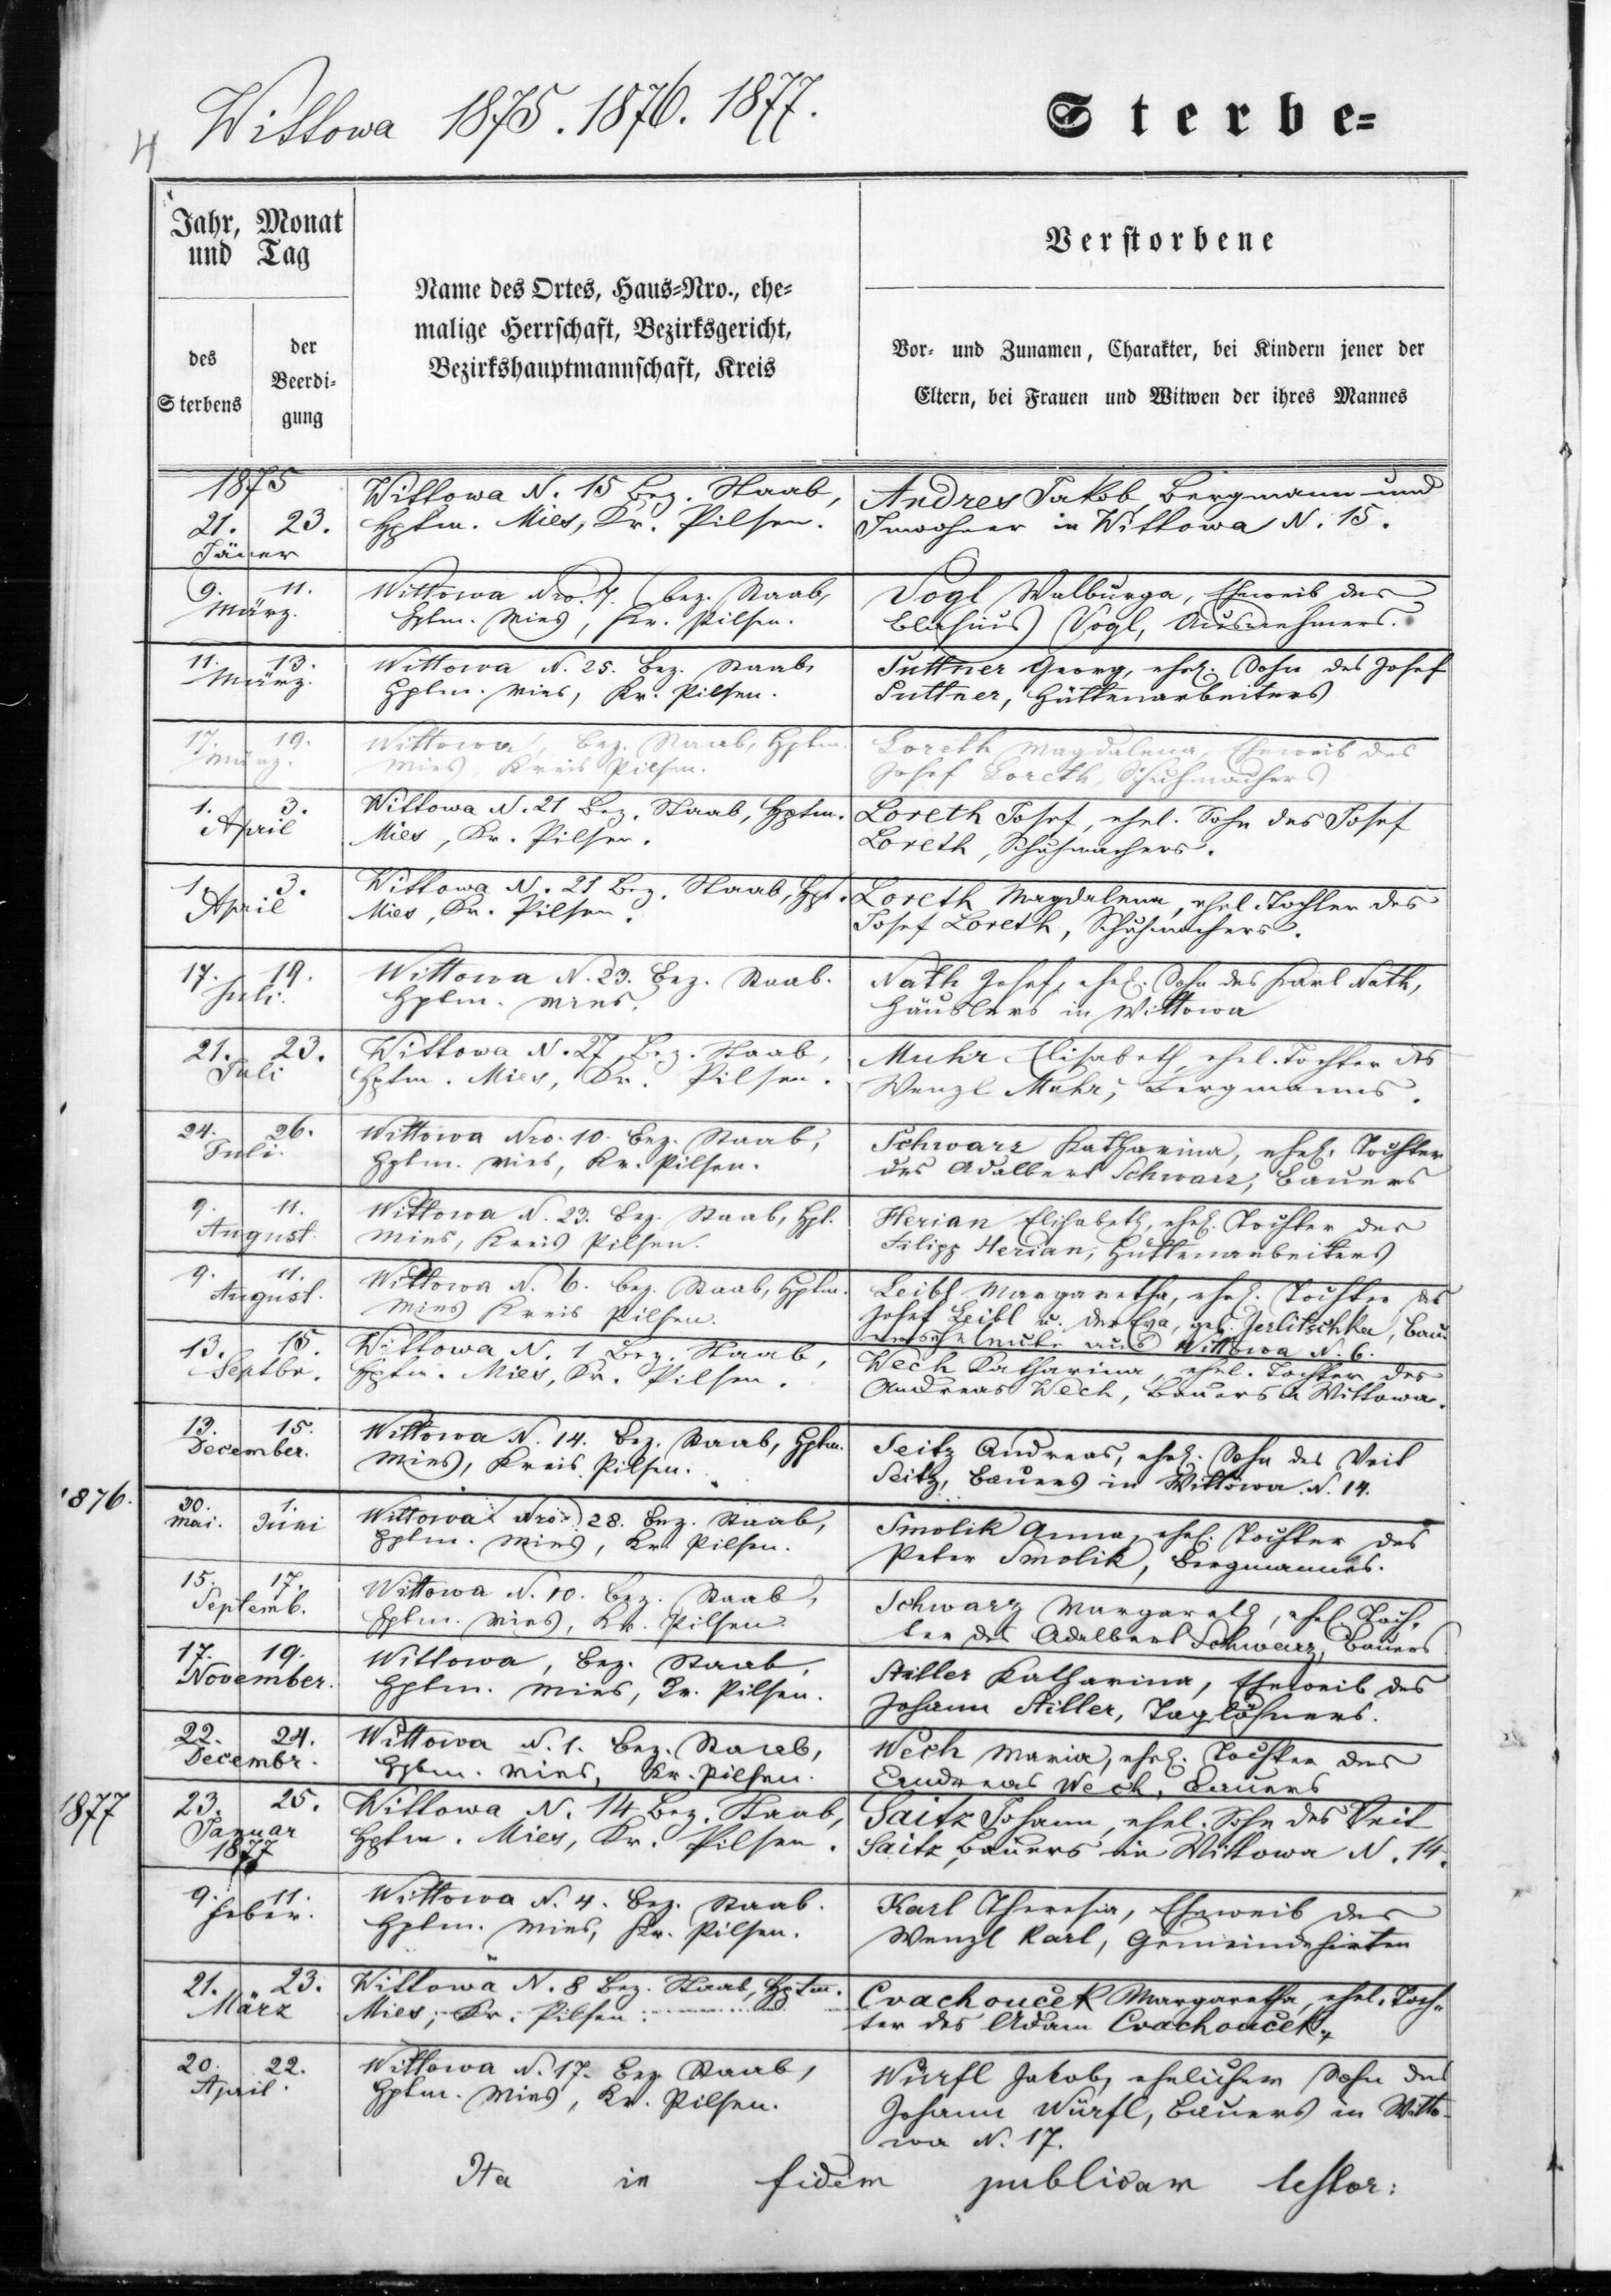 4 Wittowa 1875. 1876. 1877.
Sterbe=
Jahr, Monat
und Tag
des
Sterbens
der
Beerdi-
gung
Name des Ortes, Haus=Nro., ehe=
malige Herrschaft, Bezirksgericht,
Bezirkshauptmannschaft, Kreis
Verstorbene
Vor- und Zunamen, Charakter, bei Kindern jener der
Eltern, bei Frauen und Witwen der ihres Mannes
1875
21. 23.
Jäner
Wittowa N. 15 Bez. Staab,
Hptm. Mies, Kr. Pilsen.
Andres Jakob Bergmann und
Inwohner in Wittowa N. 15.
9. 11.
März.
Wittowa Nro. 7. Bez. Staab,
Hptm. Mies, Kr. Pilsen.
Vogl Walburga, Eheweib des
Blasius Vogl, Ausnehmers.
11. 13.
März.
Wittowa N. 25. Bez. Staab,
Hptm. Mies, Kr. Pilsen.
Suttner Georg, ehel. Sohn des Josef
Suttner, Hüttenarbeiters
17. 19.
März.
Wittowa, Bez. Staab, Hptm.
Mies Kreis Pilsen.
Loreth Magdalena, Eheweib des
Josef Loreth, Schuhmachers
1. 3.
April
Wittowa N. 21 Bez. Staab, Hptm.
Mies, Kr. Pilsen.
Loreth Josef, ehel. Sohn des Josef
Loreth, Schuhmachers.
1. 3.
April
Wittowa N. 21 Bez. Staab, Hpt.
Mies, Kr. Pilsen.
Loreth Magdalena, ehel. Tochter des
Josef Loreth, Schuhmachers.
17. 19.
Juli.
Wittowa N. 23. Bez. Staab.
Hptm. Mies.
Nath Josef, ehel. Sohn des Karl Nath,
Häuslers in Wittowa
21. 23.
Juli
Wittowa N. 27 Bez. Staab,
Hptm. Mies, Kr. Pilsen.
Muhr Elisabeth, ehel. Tochter des
Wenzl Muhr, Bergmanns.
24. 26.
Juli.
Wittowa Nro. 10. Bez. Staab,
Hptm. Mies, Kr. Pilsen.
Schwarz Katharina, ehel. Tochter
des Adalbert Schwarz, Bauers
9. 11.
August.
Wittowa N. 23. Bez. Staab, Hpt.
Mies, Kreis Pilsen.
Herian Elisabeth, ehel. Tochter des
Filipp Herian, Hüttenarbeiters
9. 11.
August.
Wittowa N. 6. Bez. Staab, Hptm.
Mies Kreis Pilsen.
Leibl Margaretha, ehel. Tochter des
Josef Leibl u. der Eva, geb. Jerlitschka, Bau
aus Wittowa N. 6.
13. 15.
Septbr.
Wittowa N. 1 Bez. Staab,
Hptm. Mies, Kr. Pilsen.
Wech Katharina, ehel. Tochter des
Andreas Wech, Bauers in Wittowa.
13. 15.
December.
Wittowa N. 14. Bez. Staab, Hptm.
Mies, Kreis Pilsen.
Seitz Andreas, ehel. Sohn des Veit
Seitz, Bauers in Wittowa N. 14.
1876.
30. 1.
Mai. Juni
Wittowa Nro 28. Bez. Staab,
Hptm. Mies, Kr. Pilsen.
Smolik Anna, ehel. Tochter des
Peter Smolik, Bergmannes.
15. 17.
Septemb.
Wittowa N. 10. Bez. Staab,
Hptm. Mies, Kr. Pilsen
Schwarz Margareth, ehel. Toch-
ter des Adalbert Schwarz, Bauers
17. 19.
November.
Wittowa, Bez. Staab,
Hptm. Mies, Kr. Pilsen.
Stiller Katharina, Eheweib des
Johann Stiller, Taglöhners.
22. 24.
Decembr.
Wittowa N. 1. Bez. Staab,
Hptm. Mies, Kr. Pilsen.
Wech Maria, ehel. Tochter des
Andreas Wech, Bauers
1877
23. 25.
Januar
1877
Wittowa N. 14 Bez. Staab,
Hptm. Mies, Kr. Pilsen.
Saitz Johann, ehel. Sohn des Veit
Saitz, Bauers in Wittowa N. 14.
9. 11.
Feber.
Wittowa N. 4. Bez. Staab.
Hptm. Mies, Kr. Pilsen.
Karl Theresia, Eheweib des
Wenzl Karl, Gemeindehirten
21. 23.
März
Wittowa N. 8 Bez. Staab, Hptm.
Mies, Kr. Pilsen.
Cvachoucek Margaretha, ehel. Toch-
ter des Adam Cvachoucek,
20. 22.
April.
Wittowa N. 17. Bez. Staab,
Hptm. Mies, Kr. Pilsen.
Würfl Jakob, ehelicher Sohn des
Johann Würfl, Bauers in Witto-
wa N. 17.
Ita in fidem publicam testor: